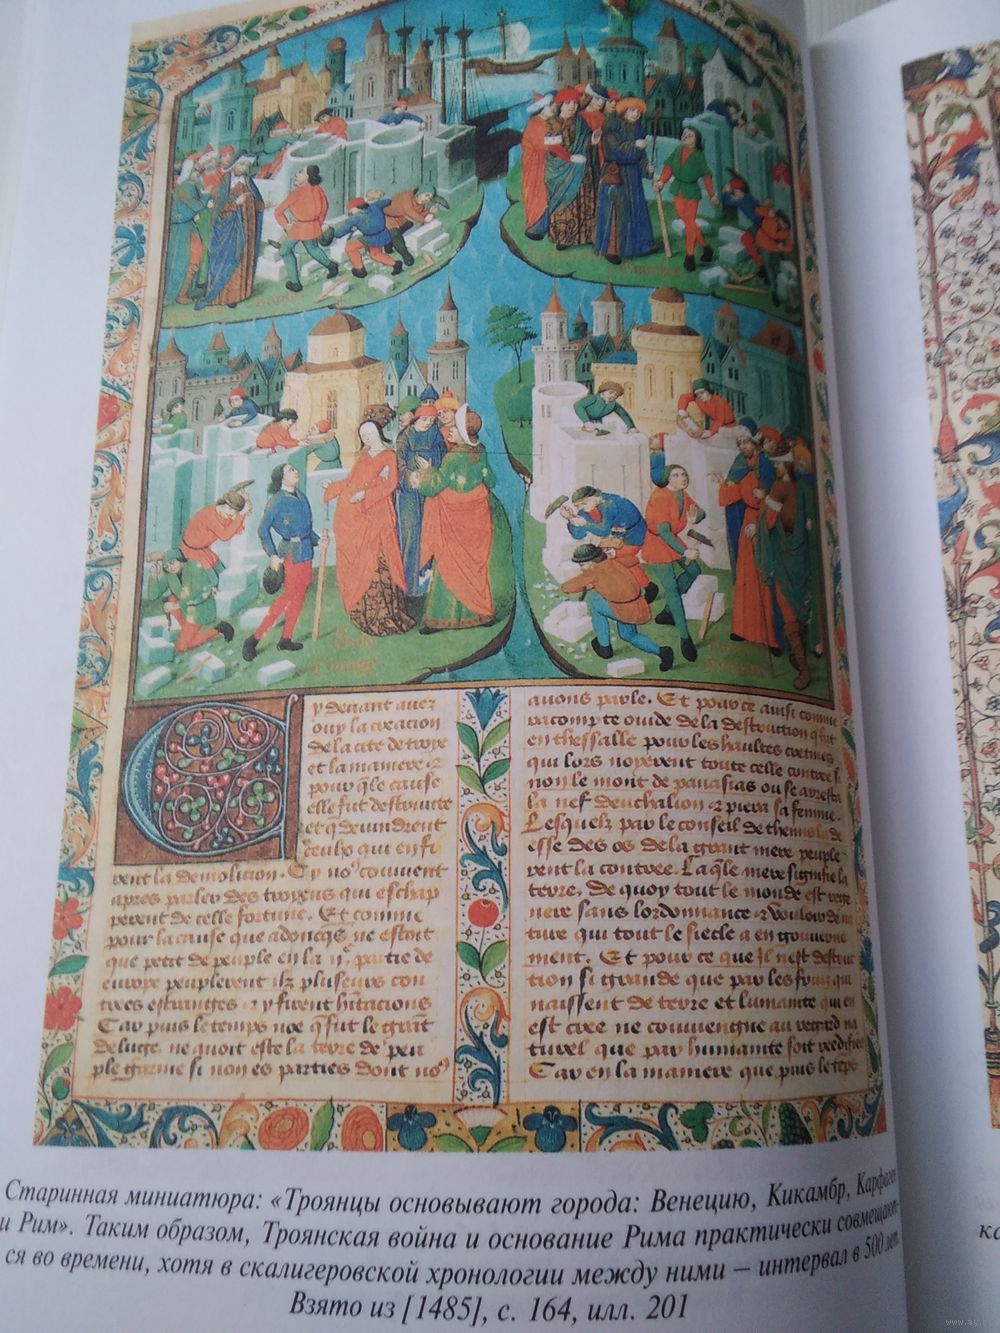 y deuant auez
ouy la creation
de la cite de troye
et la maniere &
pour q̄le cause
elle fut destruitte
et q̄ deuindrent
ceulx qui en fu
rent la demolicion. Et no9 couuient
apres parler des troyens qui eschap
perent de celle fortune. Et comme
pour la cause que adoncq̄s ne estoit
que petit de peuple en la partie de
europe peuplerent ilz plusieurs con
trees estranges & y firent hitacions
Car puis le temps noe q̄ fut le grāt
deluge ne auoit este la terre de peu
ple garnie si non es parties dont no9
auons parle. Et pour ce ainsi comme
racompte ouide de la destruction q̄ fut
en thessalle pour les haultes
qui lors noyerent toute celle contree si
non le mont de parnasias ou se aresta
la nef deucalion & pierra sa femme.
Lesquelz par le conseil de
esse des os de la grant mere peuple
rent la contree. Laq̄le mere signifie la
terre. De quoy tout le monde est
nere sans lordonnance & vouloir de na
ture qui tout le siecle a en gouuerne
ment. Et pour ce que il nest destruc
tion si grande que par les qui
naissent de terre et lumante qui en
est cree ne conuiengne au regard na
turel que par humante soit reedifiee
Car en la maniere que puis le teps
Старинная миниатюра: «Троянцы основывают города: Венецию, Кикамбр, Карфаген
и Рим». Таким образом, Троянская война и основание Рима практически совмещают-
ся во времени, хотя в скалигеровской хронологии между ними – интервал в 500 лет.
Взято из [1485], с. 164, илл. 201